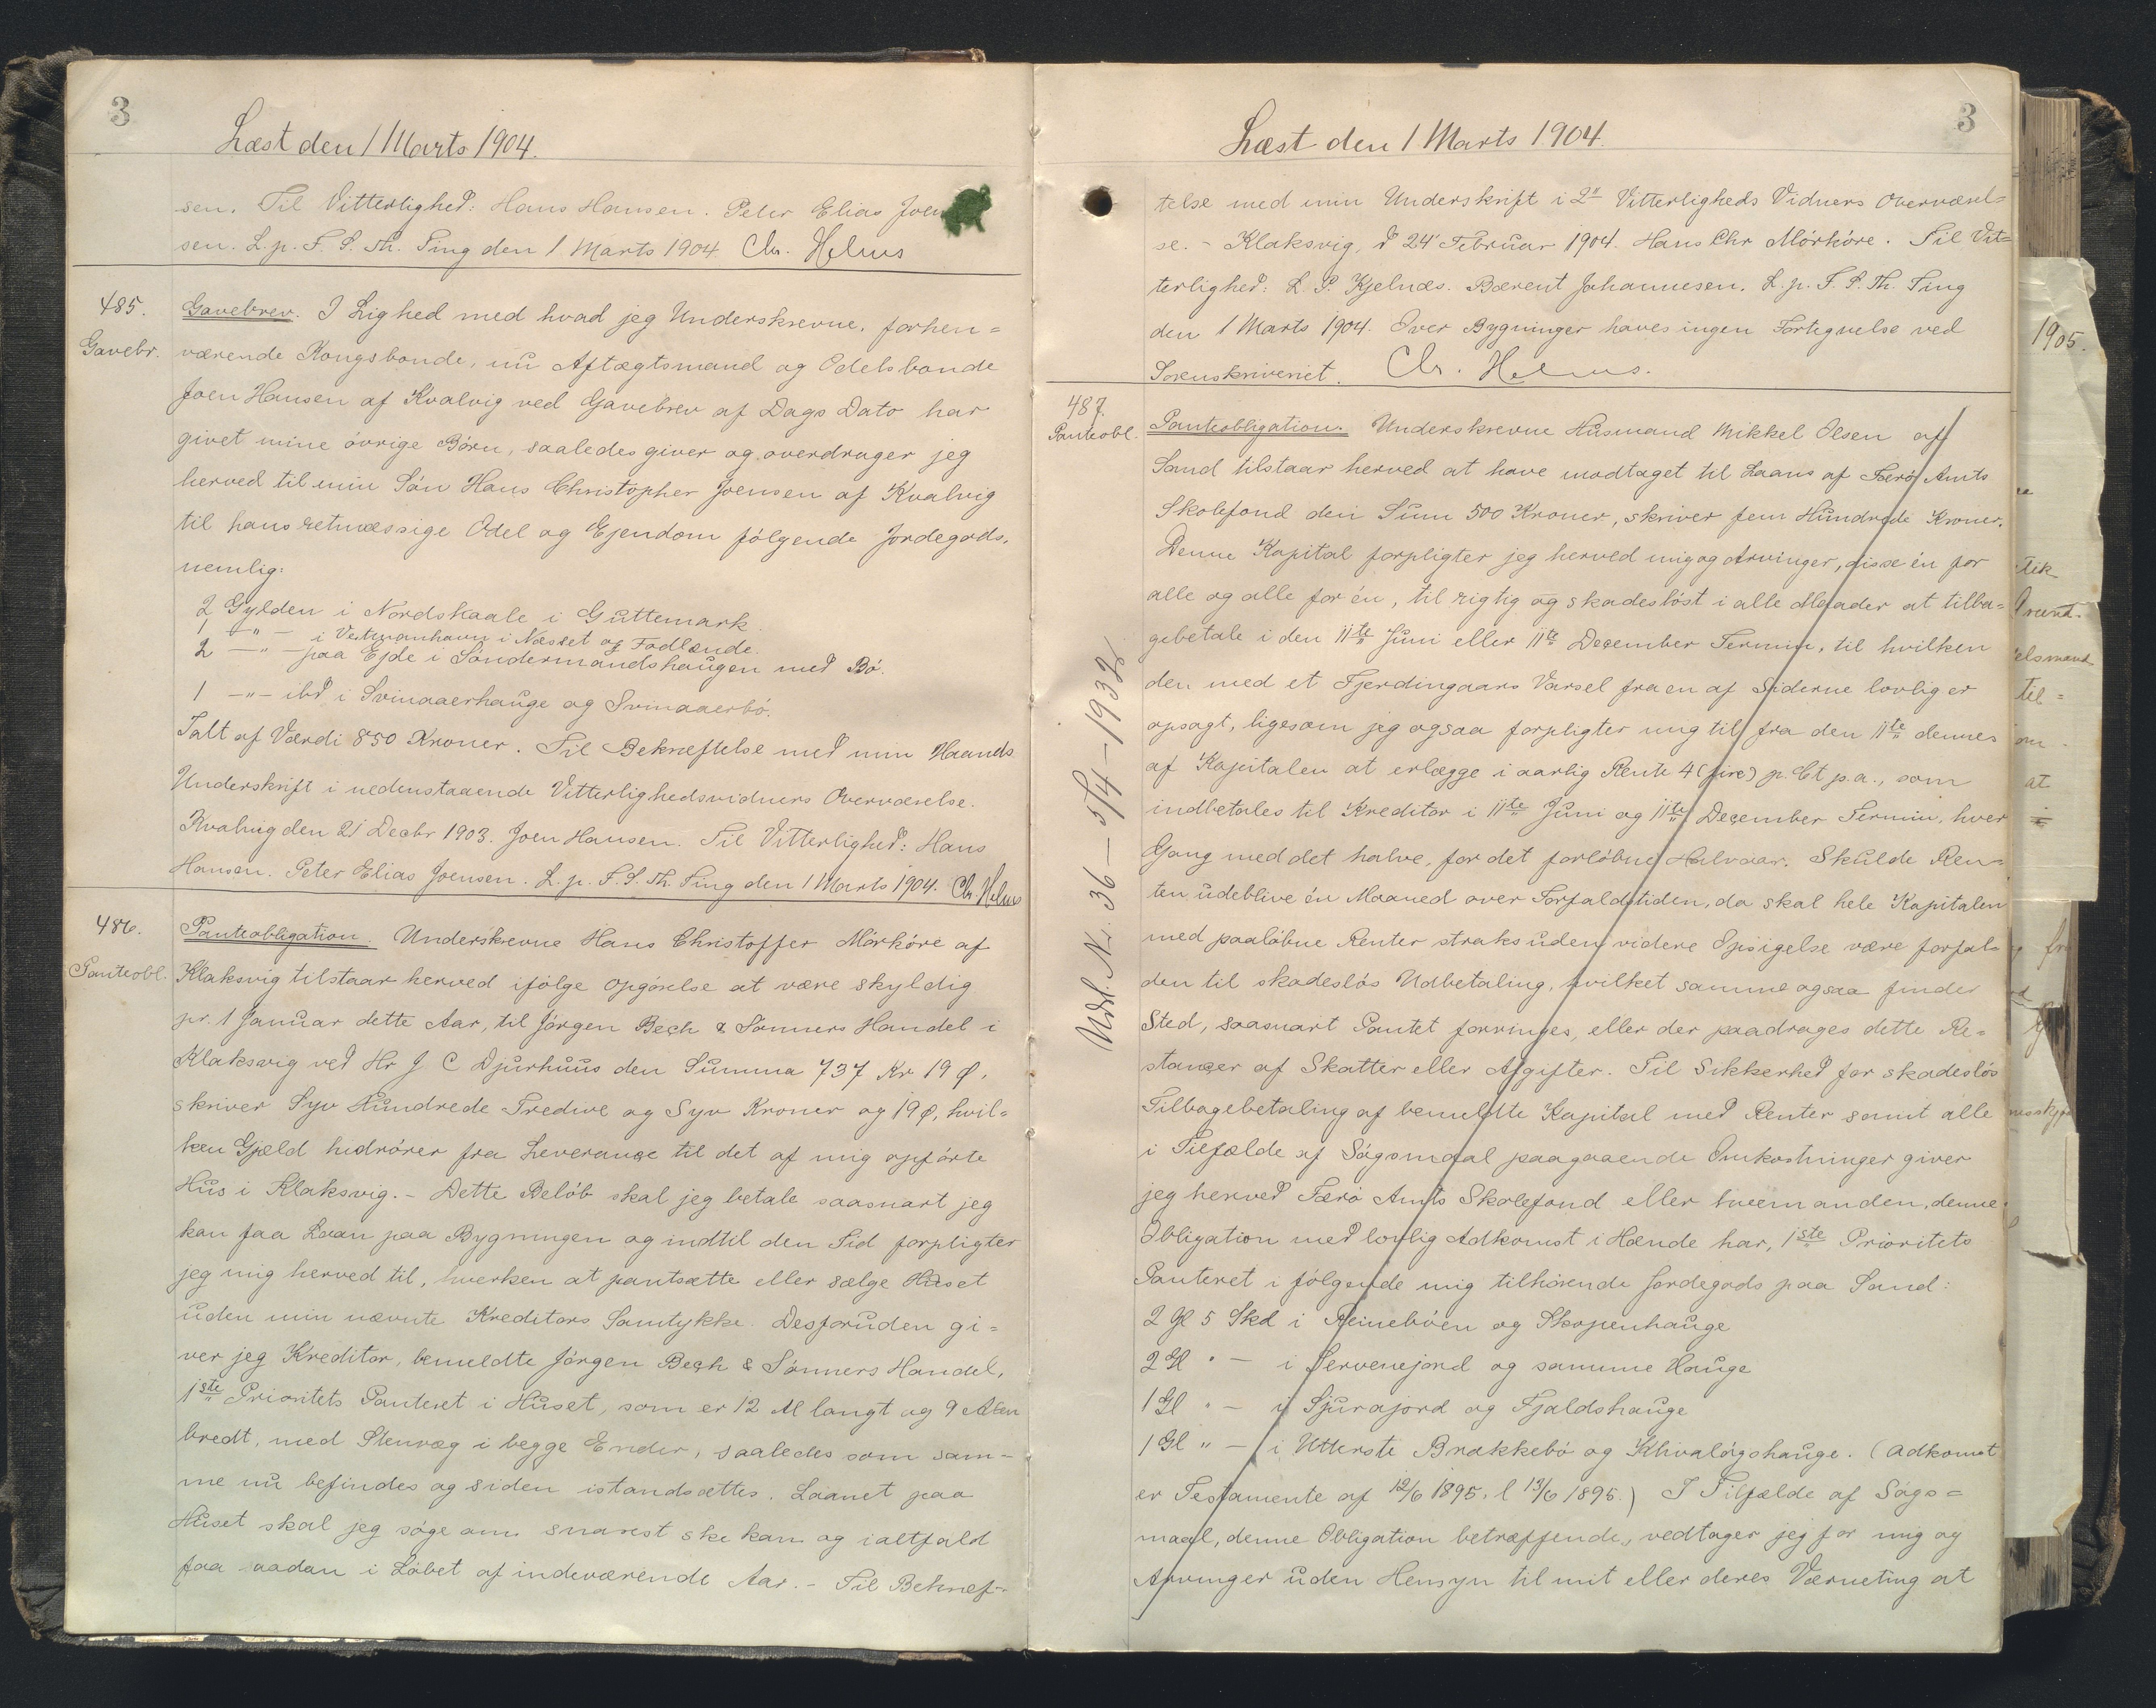 3
Læst den 1 Marts 1904.
sen. Til Vitterlighed: Hans Hansen. Peter Elias Joen
sen. L. p. F. S. Th. Ting den 1 Marts 1904. Chr. Helms
485.
Gavebr.
Gavebrev. I Lighed med hvad jeg Underskrevne, forhen=
værende Kongsbonde, nu Aftægtsmand og Odelsbonde
Joen Hansen af Kvalvig ved Gavebrev af Dags Dato har
givet mine øvrige Børn, saaledes giver og overdrager jeg
herved til min Søn Hans Christopher Joensen af Kvalvig
til hans retmæssige Odel og Ejendom følgende Jordegods,
nemlig:
2 Gylden i Nordskaale i Guttemark.
1 —"— i Vestmanhavn i Næsset og Fodlænde.
2 —"— paa Ejde i Søndermandshaugen med Bø.
1 —"— ibd i Svinaaerhauge og Svinaaerbø.
Talt af Værdi 850 Kroner. Til Bekræftelse med min Haands
Underskrift i nedenstaaende Vitterlighedsvidners Overværelse.
Kvalvig den 21 Decbr 1903. Joen Hansen. Til Vitterlighed: Hans
Hansen. Peter Elias Joensen. L. p. F. S. Th. Ting den 1 Marts 1904. Chr Helms
486.
Panteobl.
Panteobligation. Underskrevne Hans Christoffer Mörköre af
Klaksvig tilstaar herved ifølge Opgørelse at være skyldig
pr. 1 Januar dette Aar, til Jørgen Bech & Sønners Handel i
Klaksvig ved Hr J. C Djurhuus den Summa 737 Kr 19 Ø,
skriver Syv Hundrede Tredive og Syv Kroner og 19 Ø, hvil=
ken Gjæld hidrører fra Leverance til det af mig opførte
Hus i Klaksvig. – Dette Beløb skal jeg betale saasnart jeg
kan faa Laan paa Bygningen og indtil den Tid forpligter
jeg mig herved til, hverken at pantsætte eller sælge Huset
uden min nævnte Kreditors Samtykke. Desforuden gi=
ver jeg Kreditor, bemeldte Jørgen Bech & Sønners Handel,
1ste Prioritets Panteret i Huset, som er 12 Al langt og 9 Alen
bredt, med Stenvæg i begge Ender, saaledes som sam=
me nu befindes og siden istandsættes. Laanet paa
Huset skal jeg søge om snarest ske kan og ialtfald
faa saadan i Løbet af indeværende Aar. – Til Bekræf=
3
Læst den 1 Marts 1904.
telse med min Underskrift i 2" Vitterligheds Vidners Overværel=
se. – Klaksvig, d 24' Februar 1904. Hans Chr Mörköre. Til Vit=
terlighed: L. P. Kjelnæs. Bærent Johannesen. L. p. F. S. Th. Ting
den 1 Marts 1904. Over Bygninger haves ingen Fortegnelse ved
Sorenskriveriet. Chr. Helms.
487.
Panteobl.
Panteobligation. Underskrevne Husmand Mikkel Olsen af
Sand tilstaar herved at have modtaget til Laans af Færø Amts
Skolefond den Sum 500 Kroner, skriver fem Hundrede Kroner.
Denne Kapital forpligter jeg herved mig og Arvinger, disse én for
alle og alle for én, til rigtig og skadesløst i alle Maader at tilba=
gebetale i den 11te Juni eller 11te December Termin, til hvilken
den med et Fjerdingaars Varsel fra en af Siderne lovlig er
opsagt, ligesom jeg ogsaa forpligter mig til fra den 11te dennes
af Kapitalen at erlægge i aarlig Rente 4 (fire) p. Ct p. a., som
indbetales til Kreditor i 11te Juni og 11te December Termin, hver
Gang med det halve, for det forløbne Halvaar. Skulde Ren=
ten udeblive én Maaned over Forfaldstiden, da skal hele Kapitalen
med paaløbne Renter straks uden videre Opsigelse være forfal=
den til skadesløs Udbetaling, hvilket samme ogsaa finder
Sted, saasnart Pantet forringes, eller der paadrages dette Re=
stancer af Skatter eller Afgifter. Til Sikkerhed for skadesløs
Tilbagebetaling af bemeldte Kapital med Renter samt alle
i Tilfælde af Søgsmaal paagaaende Omkostninger giver
jeg herved Færø Amts Skolefond eller hvem anden, denne
Obligation med lovlig Adkomst i Hænde har, 1ste Prioritets
Panteret i følgende mig tilhørende Jordegods paa Sand:
2 Gl 5 Skd i Reinebøen og Skopenhauge
2 Gl " — i Servenejord og samme Hauge
1 Gl " — i Sjurajord og Fjaldshauge
1 Gl " — i Utterste Brækkebø og Khvaløgshauge. (Adkomst
er Testamente af 12/6 1895, l 13/6 1895.) I Tilfælde af Søgs=
maal, denne Obligation betræffende, vedtager jeg for mig og
Arvinger uden Hensyn til mit eller deres Værneting at
Udsl. Nr. 36 – 5/4 – 1932
1905.